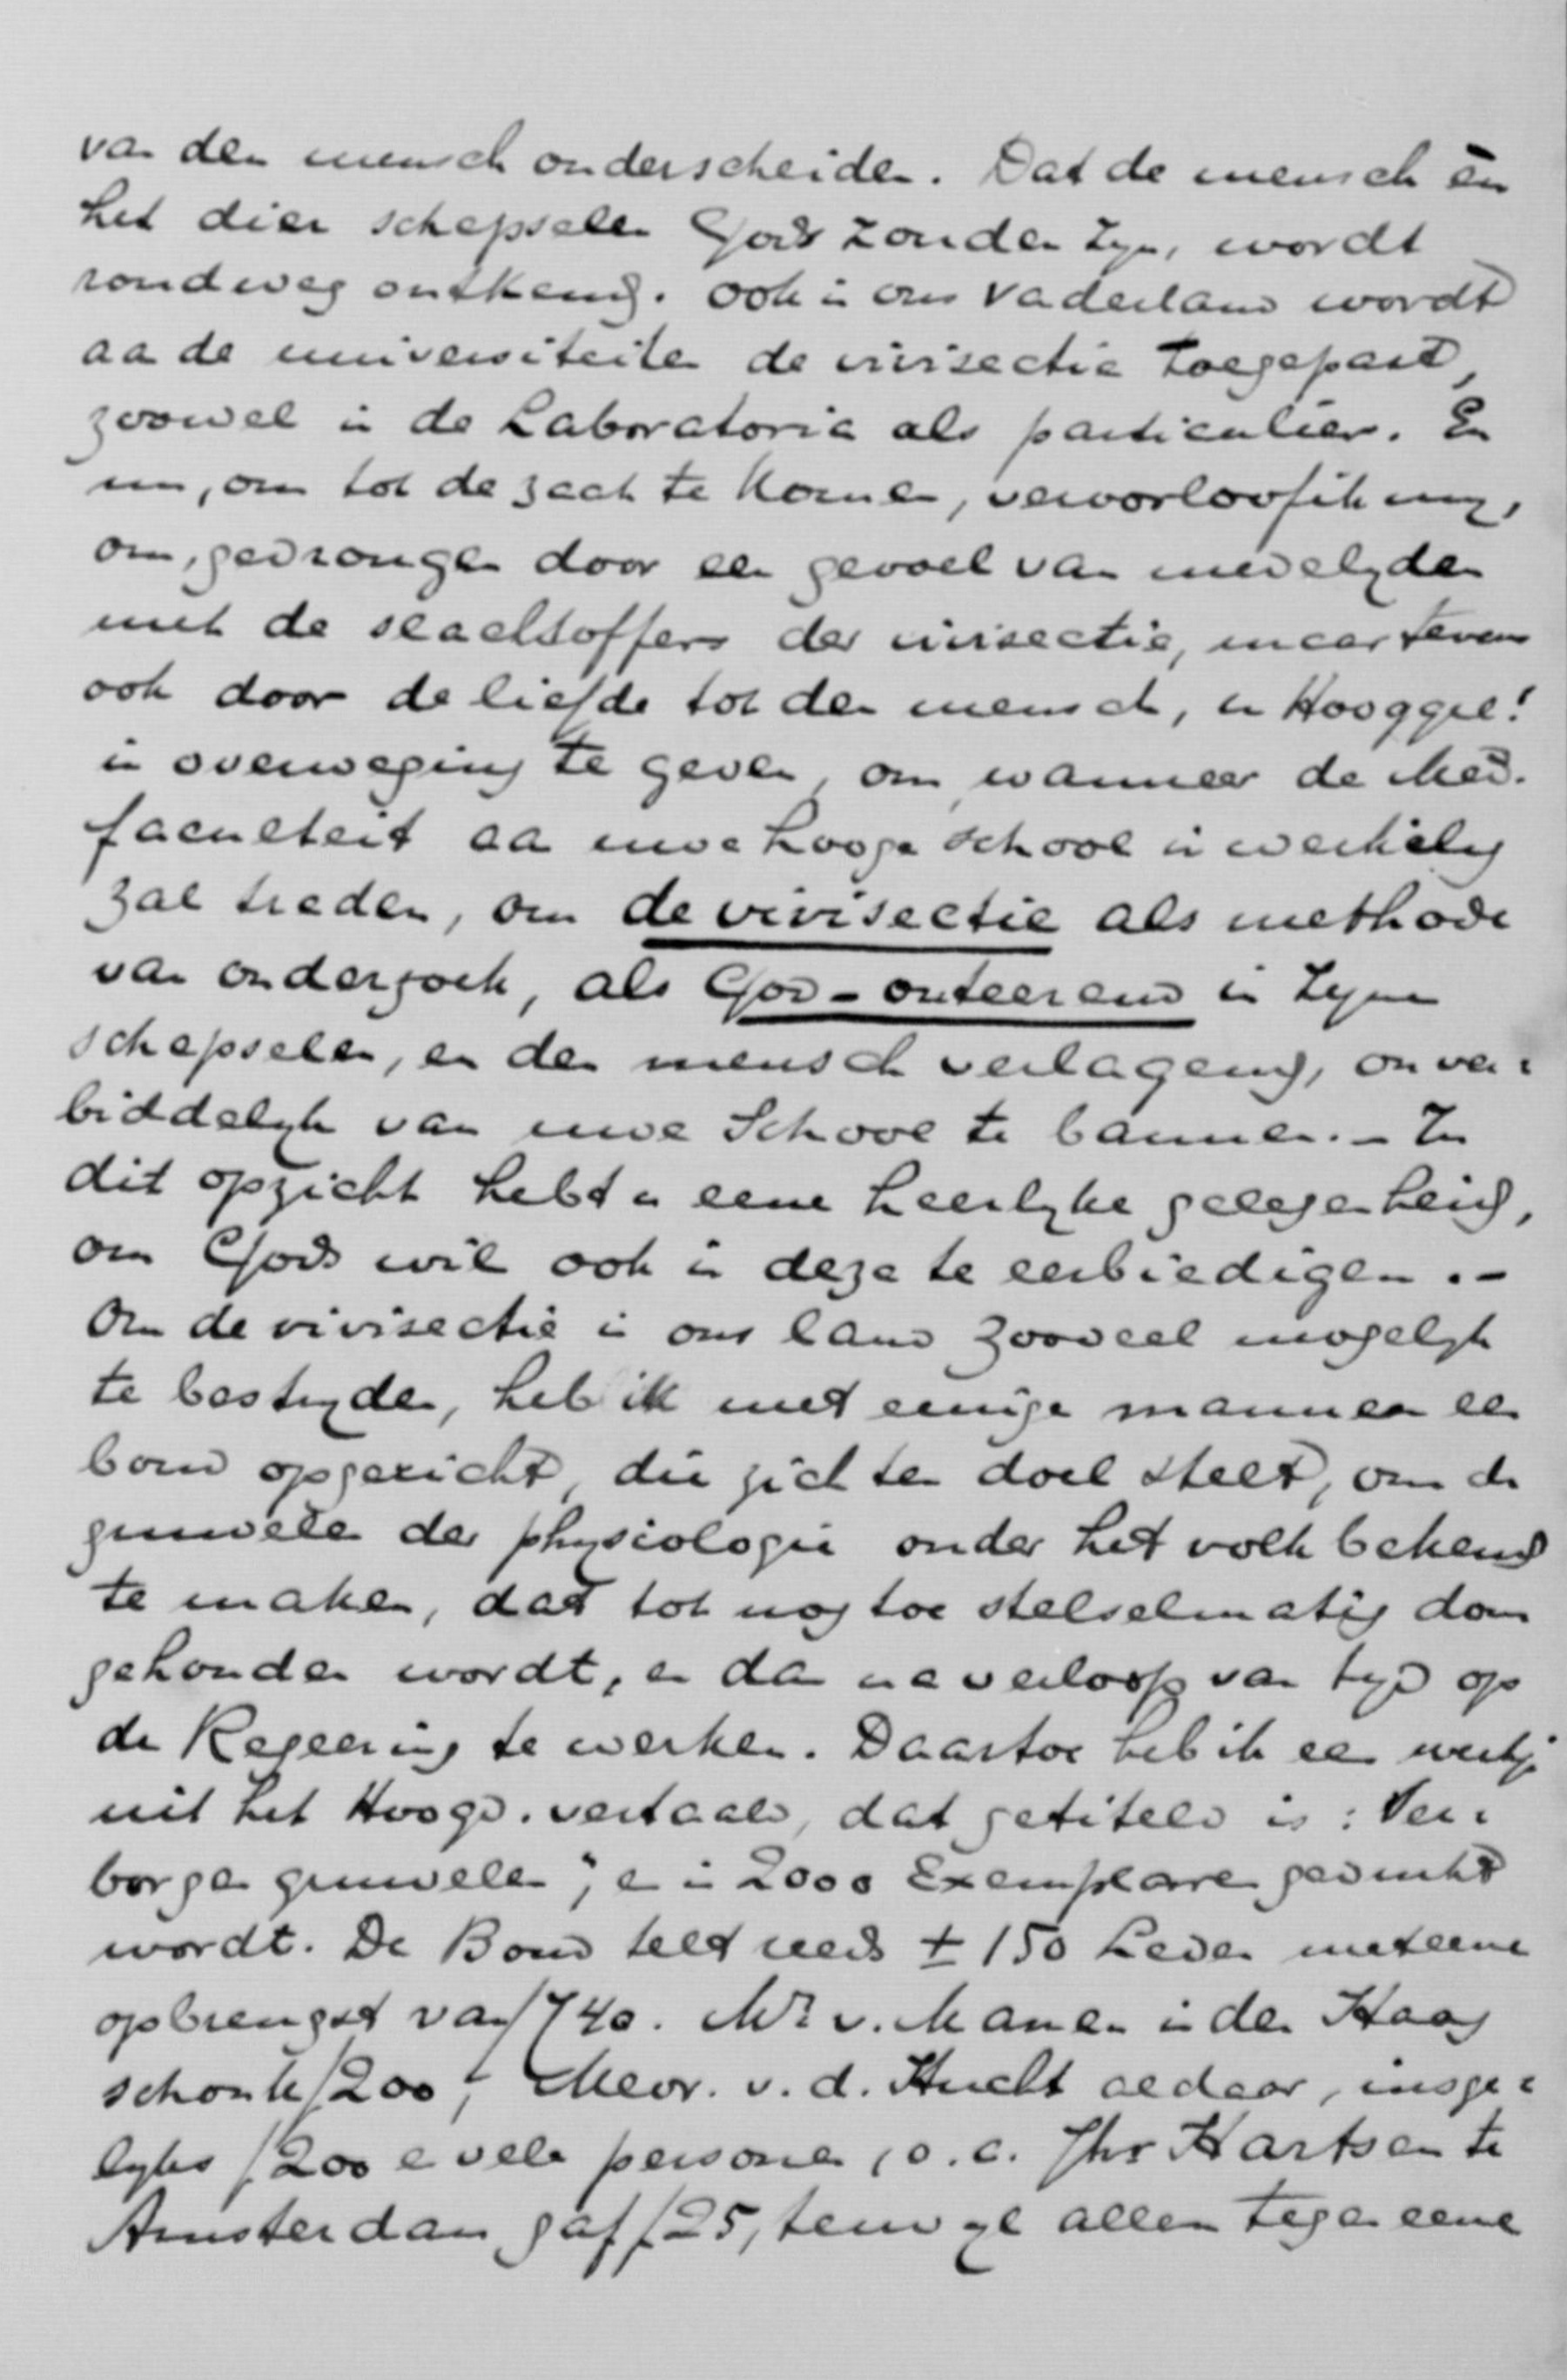 van den mensch onderscheiden. Dat de mensch en
het dier schepselen Gods zouden zyn, wordt
rondweg ontkend. Ook in ons Vaderland wordt
aan de universiteiten de vivisectie toegepast,
zoowel in de Laboratoria als particulier. En
nu, om tot de zaak te komen, veroorloof ik my,
om, gedrongen door een gevoel van medelyden
met de slachtoffers der vivisectie, maar tevens
ook door de liefde tot den mensch, u Hooggel!
in overweging te geven, om wanneer de Med.
faculteit aan uwe hooge school in werking
zal treden, om de vivisectie als methode
van onderzoek, als God-onteerend in Zyne
schepselen, en den mensch verlagend, onver=
biddelyk van uwe School te bannen. - In
dit opzicht hebt u eene heerlyke gelegenheid,
om Gods wil ook in deze te eerbiedigen. -
Om de vivisectie in ons land zooveel mogelyk
te bestryden, heb ik met eenige mannen een
bond opgericht, die zich ten doel stelt, om de
gruwelen der physiologie onder het volk bekend
te maken, dat tot nog toe stelselmatig dom
gehouden wordt, en dan na verloop van tyd op
de Regeering te werken. Daartoe heb ik een werkje
uit het Hoogd. vertaald, dat getiteld is: Ver=
borgen gruwelen", en in 2000 Exemplaren gedrukt
wordt. De Bond telt reeds ± 150 Leden met eene
opbrengst van f 740. Mr v. Manen in den Haag
schonk f 200, Mevr. v. d. Hucht aldaar, insge=
lyks f 200 en vele personen, o.a. Jhr Hartsen te
Amsterdam gaf f 25, terwyl allen tegen eene